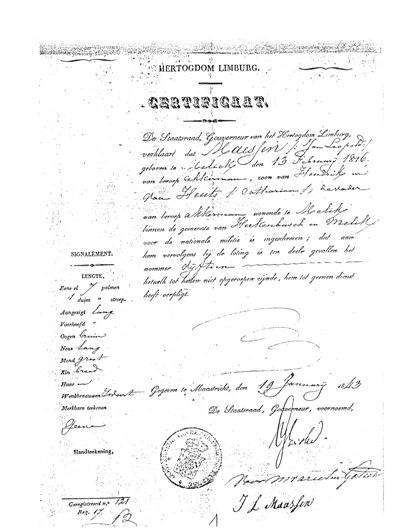 HERTOGDOM LIMBURG.
CERTIFICAAT.
De Staatsraad, Gouverneur van het Hertogdom Limburg,
verklaart dat Maassen /: Jan Leopold :/
geboren te Melick den 13 February 1816
van beroep akkerman, zoon van Hendrik en
van Heuts / Catharina /,
van beroep akkerman wonende te Melick
binnen de gemeente van Herkenbosch en Melick
voor de nationale militie is ingeschreven; dat aan
hem vervolgens bij de loting is ten deele gevallen het
nommer vijftien
hetwelk tot heden niet opgeroepen zijnde, hem tot geenen dienst
heeft verpligt.
SIGNALEMENT.
LENGTE,
Eene el 7 palmen
1 duim " streep.
Aangezigt lang
Voorhoofd "
Oogen bruin
Neus lang
Mond groot
Kin breed
Haar
Wenkbraauwen
Merkbare teekenen
Geene
Handteekening,
Gegeven te Maastricht, den 19 January 1843
De Staatsraad, Gouverneur voornoemd,
J L Maassen
Geregistreerd n.º 121
Reg. 17.